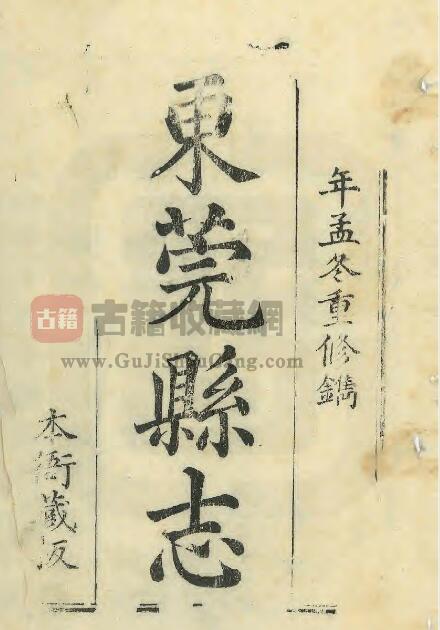 年孟冬重修鐫
東莞縣志
本衙藏板
古籍 古籍收藏網
www.GuJiShouCang.com